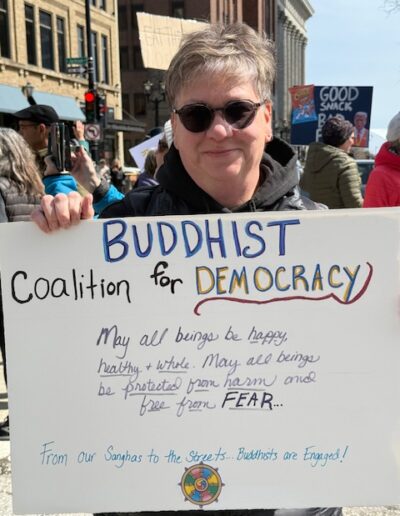 GOOD
SNACK
BAD
BUDDHIST
Coalition for DEMOCRACY
May all beings be happy,
healthy + whole. May all beings
be protected from harm and
free from FEAR...
From our Sanghas to the Streets... Buddhists are Engaged!